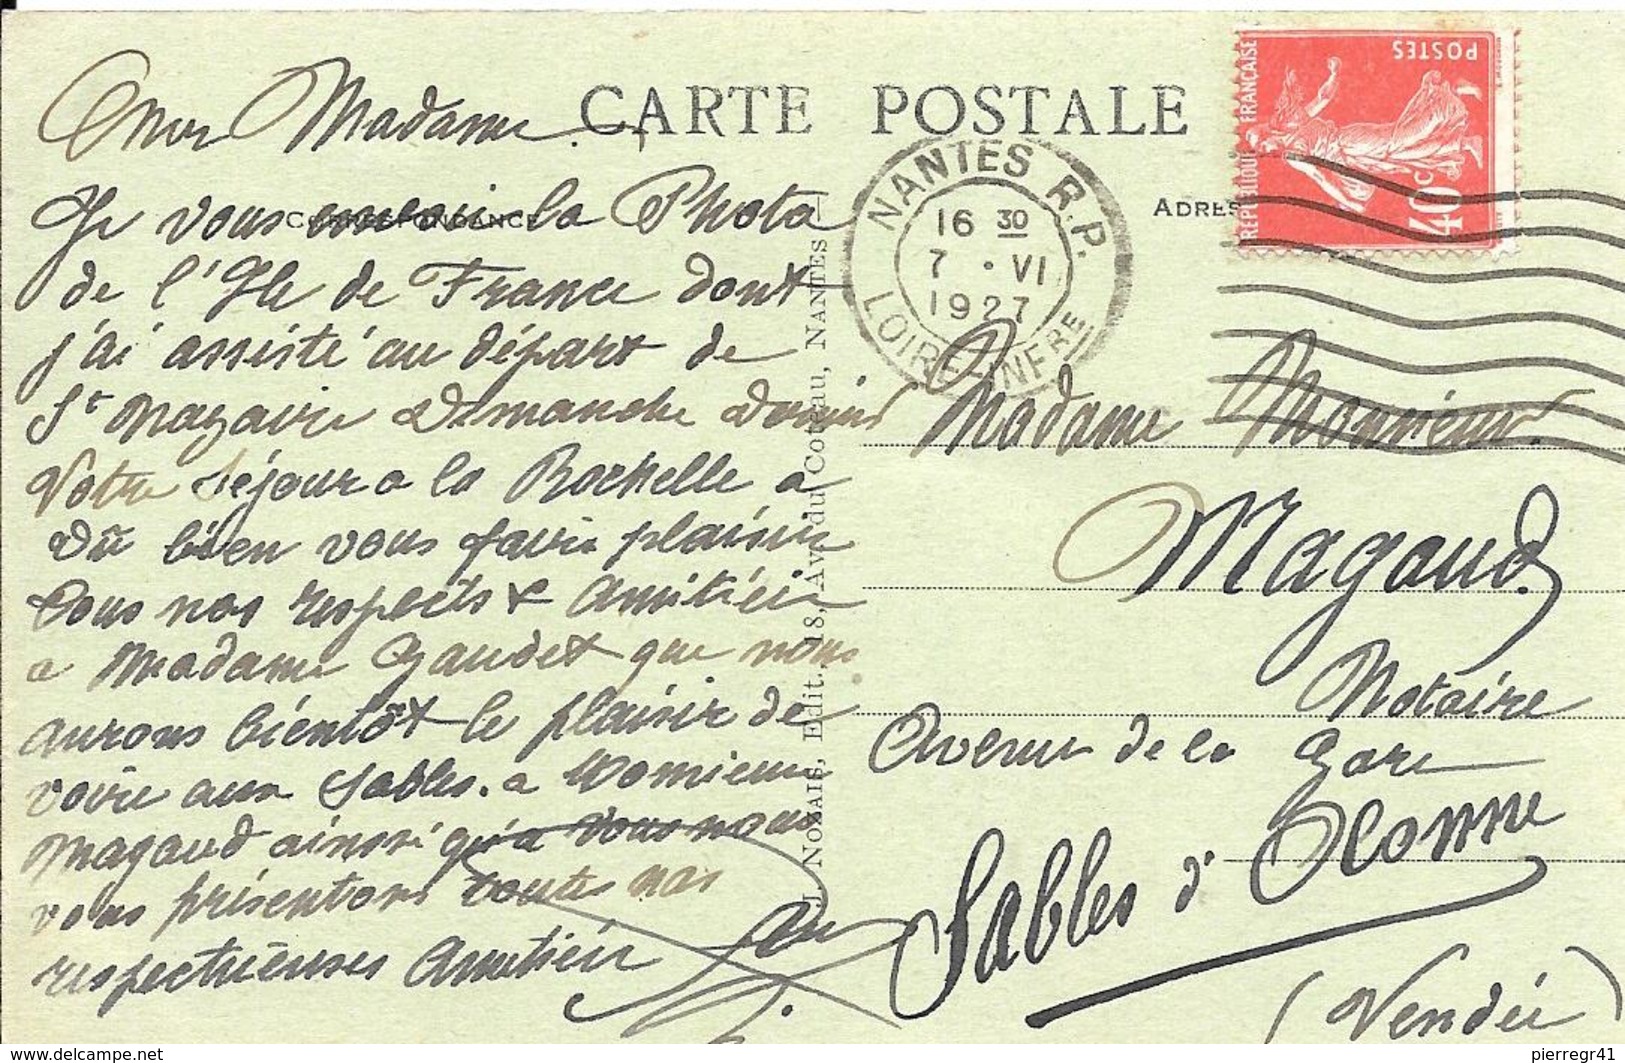 CARTE POSTALE
CORRESPONDANCE
ADRES
Cher Madame
Je vous envoi la Photo
de l'Ile de France dont
j'ai assisté au départ de
St Nazaire Dimanche Dernier
Votre séjour a la Rochelle a
dû bien vous faire plaisir
Tous nos respects & Amitiéis
a Madame Gaudet que nous
aurons bientôt le plaisir de
voire aux Sables. a Monsieur
Magaud ainsi qu'a vous nous
vous présentons toutes nos
respectueuses Amitiéis
J. NOZAIS, Edit. 18, Av. du Coteau, NANTES
NANTES R.P.
16 30
7 · VI
1927
LOIRE-INFRE
REPUBLIQUE FRANÇAISE
POSTES
40c
Madame Monsieur
Magaud
Notaire
Avenue de la Gare
Sables d'Olonne
(Vendée)
pierregr41